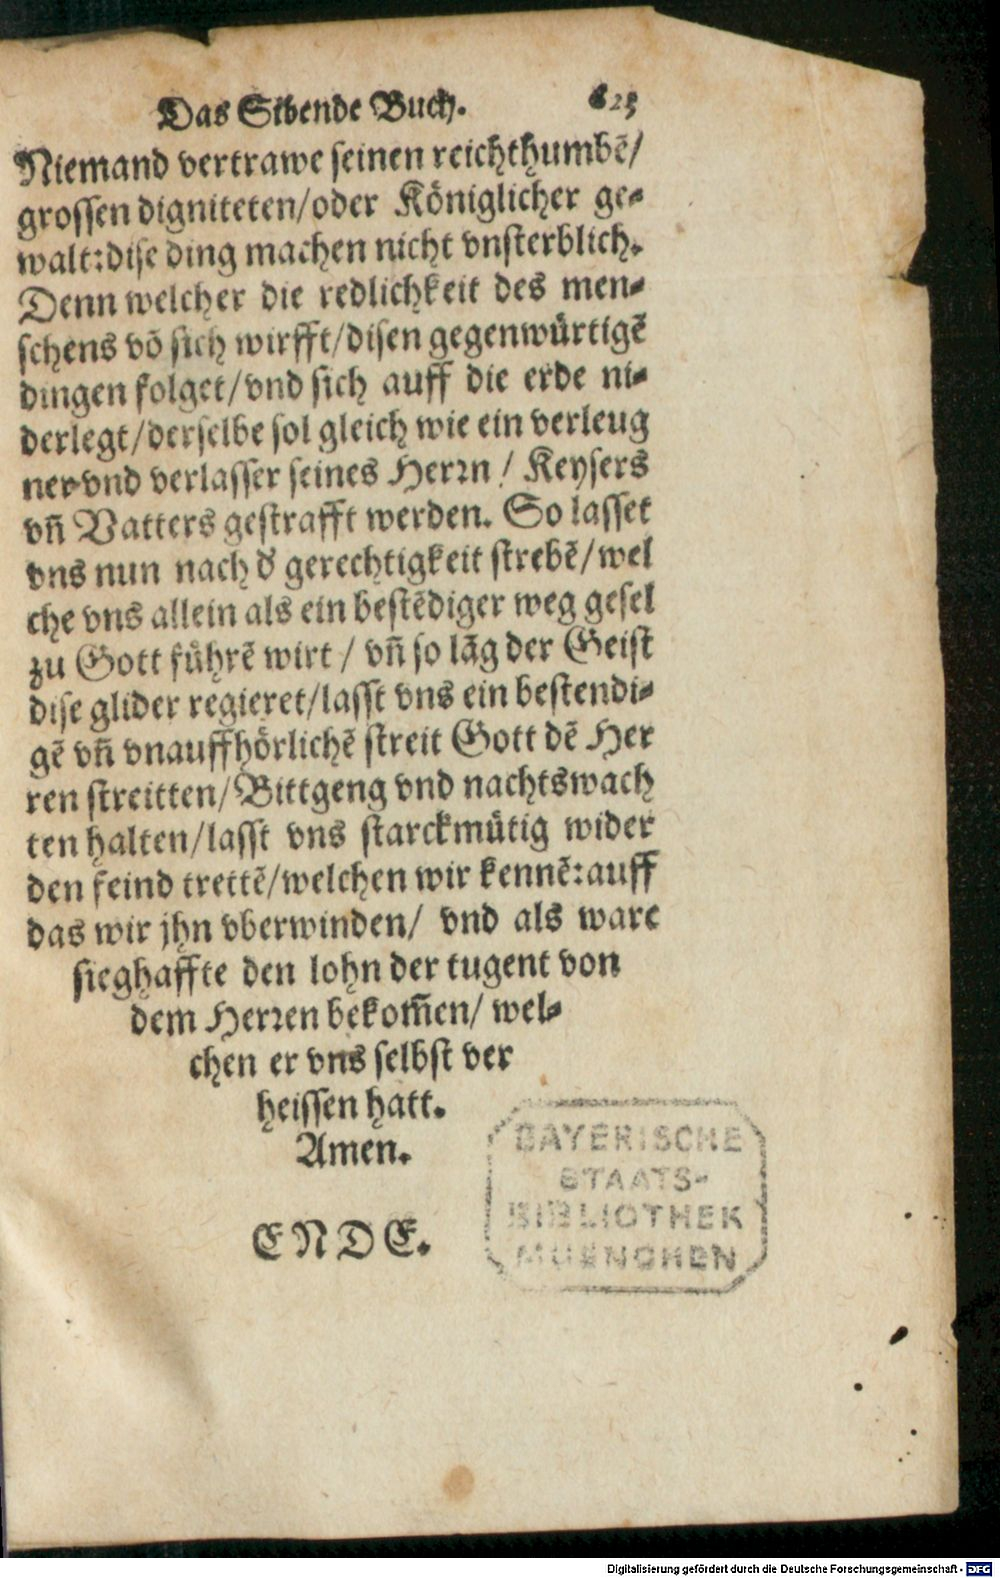 Das Sibende Buch. 625
Niemand vertrawe seinen reichthumbẽ/
grossen digniteten/oder Königlicher ge-
walt:dise ding machen nicht vnsterblich.
Denn welcher die redlichkeit des men-
schens võ sich wirfft/disen gegenwürtigẽ
dingen folget/vnd sich auff die erde ni-
derlegt/derselbe sol gleich wie ein verleug
ner vnd verlasser seines Herrn/ Keysers
vñ Vatters gestrafft werden. So lasset
vns nun nach d̕ gerechtigkeit strebẽ/wel
che vns allein als ein bestẽdiger weg gesel
zu Gott führẽ wirt/ vñ so lãg der Geist
dise glider regieret/lasst vns ein bestendi-
gẽ vñ vnauffhörlichẽ streit Gott dẽ Her
ren streitten/Bittgeng vnd nachtswach
ten halten/lasst vns starckmütig wider
den feind trettẽ/welchen wir kennẽ:auff
das wir jhn vberwinden/ vnd als ware
sieghaffte den lohn der tugent von
dem Herren bekom̃en/ wel-
chen er vns selbst ver
heissen hatt.
Amen.
ENDE.
BAYERISCHE
STAATS-
BIBLIOTHEK
MUENCHEN
Digitalisierung gefördert durch die Deutsche Forschungsgemeinschaft - DFG